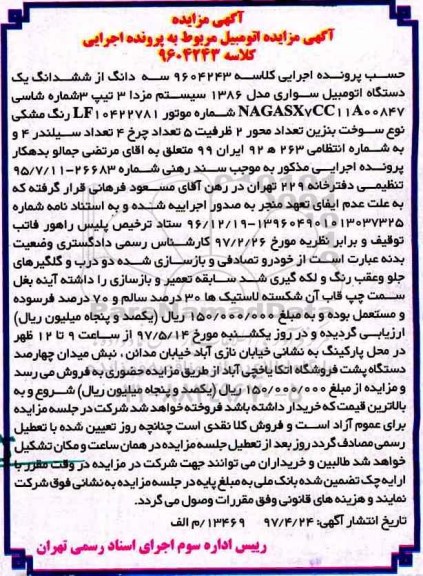 آگهی مزایده
آگهی مزایده اتومبیل مربوط به پرونده اجرایی
کلاسه ۹۶۰۴۲۴۳
حسب پرونده اجرایی کلاسه ۹۶۰۴۲۴۳ سه دانگ از ششدانگ یک
دستگاه اتومبیل سواری مدل ۱۳۸۶ سیستم مزدا ۳ تیپ ۳شماره شاسی
NAGASX۷CC۱۱A۰۰۸۴۷ شماره موتور LF۱۰۴۲۲۷۸۱ رنگ مشکی
نوع سوخت بنزین تعداد محور ۲ ظرفیت ۵ تعداد چرخ ۴ تعداد سیلندر ۴ و
به شماره انتظامی ۲۶۳ ه ۹۲ ایران ۹۹ متعلق به اقای مرتضی جمالو بدهکار
پرونده اجرایی مذکور به موجب سند رهنی شماره ۲۶۶۸۳-۹۵/۷/۱۱
تنظیمی دفترخانه ۲۲۹ تهران در رهن آقای مسعود فرهانی قرار گرفته که
به علت عدم ایفای تعهد منجر به صدور اجراییه شده و به استناد نامه شماره
۱۳۹۶۰۴۹۰۱۰۱۳۰۳۷۳۲۵-۹۶/۱۲/۱۹ ستاد ترخیص پلیس راهور فاتب
توقیف و برابر نظریه مورخ ۹۷/۲/۲۶ کارشناس رسمی دادگستری وضعیت
بدنه عبارت است از خودرو تصادفی و بازسازی شده دو درب و گلگیرهای
جلو وعقب رنگ و لکه گیری شد سابقه تعمیر و بازسازی را داشته آینه بغل
سمت چپ قاب آن شکسته لاستیک ها ۳۰ درصد سالم و ۷۰ درصد فرسوده
و مستعمل بوده و به مبلغ ۱۵۰/۰۰۰/۰۰۰ ریال (یکصد و پنجاه میلیون ریال)
ارزیابی گردیده و در روز یکشنبه مورخ ۹۷/۵/۱۴ از ساعت ۹ تا ۱۲ ظهر
در محل پارکینگ به نشانی خیابان نازی آباد خیابان مدائن ، نبش میدان چهارصد
دستگاه پشت فروشگاه اتکا یاخچی آباد از طریق مزایده حضوری به فروش می رسد
و مزایده از مبلغ ۱۵۰/۰۰۰/۰۰۰ ریال (یکصد و پنجاه میلیون ریال) شروع و به
بالاترین قیمت که خریدار داشته باشد فروخته خواهد شد شرکت در جلسه مزایده
برای عموم آزاد است و فروش کلا نقدی است چنانچه روز تعیین شده با تعطیل
رسمی مصادف گردد روز بعد از تعطیل جلسه مزایده در همان ساعت و مکان تشکیل
خواهد شد طالبین و خریداران می توانند جهت شرکت در مزایده در وقت مقرر با
ارایه چک تضمین شده بانک ملی به مبلغ پایه در جلسه مزایده به نشانی فوق شرکت
نمایند و هزینه های قانونی وفق مقررات وصول می گردد.
تاریخ انتشار آگهی: ۹۷/۴/۲۴ ۱۳۴۶۹/م الف
رییس اداره سوم اجرای اسناد رسمی تهران